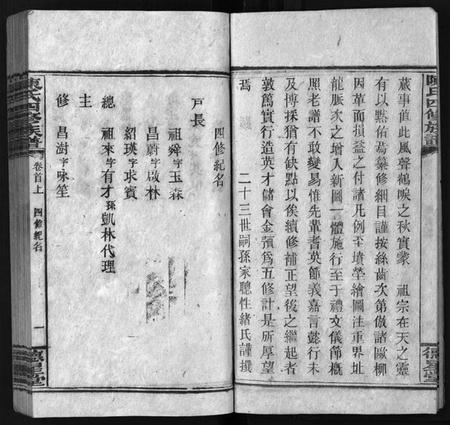 蕆事值此風聲鶴唳之秋實蒙 祖宗在天之靈
有以黙佑焉纂修綱目謹按絲齒次第倣諸歐柳
因革而損益之付諸凡例至墳塋繪圖注重界址
龍脈次之增入新圖一體施行至于禮文儀節概
照老譜不敢變易惟先輩耆英節義嘉言懿行未
及博採猶有缺點以俟續修補正望後之繼起者
敦篤實行造英才儲會金預爲五修計是所厚望
焉
二十三世嗣孫家聰性緒氏謹撰
陳氏四修族譜
卷首上
四修紀名
一
四修紀名
戸長
祖舜字玉森
昌蔚字啟林
紹瑛字求賓
總 祖來字有才孫凱林代理
主
修 昌澍字咏笙